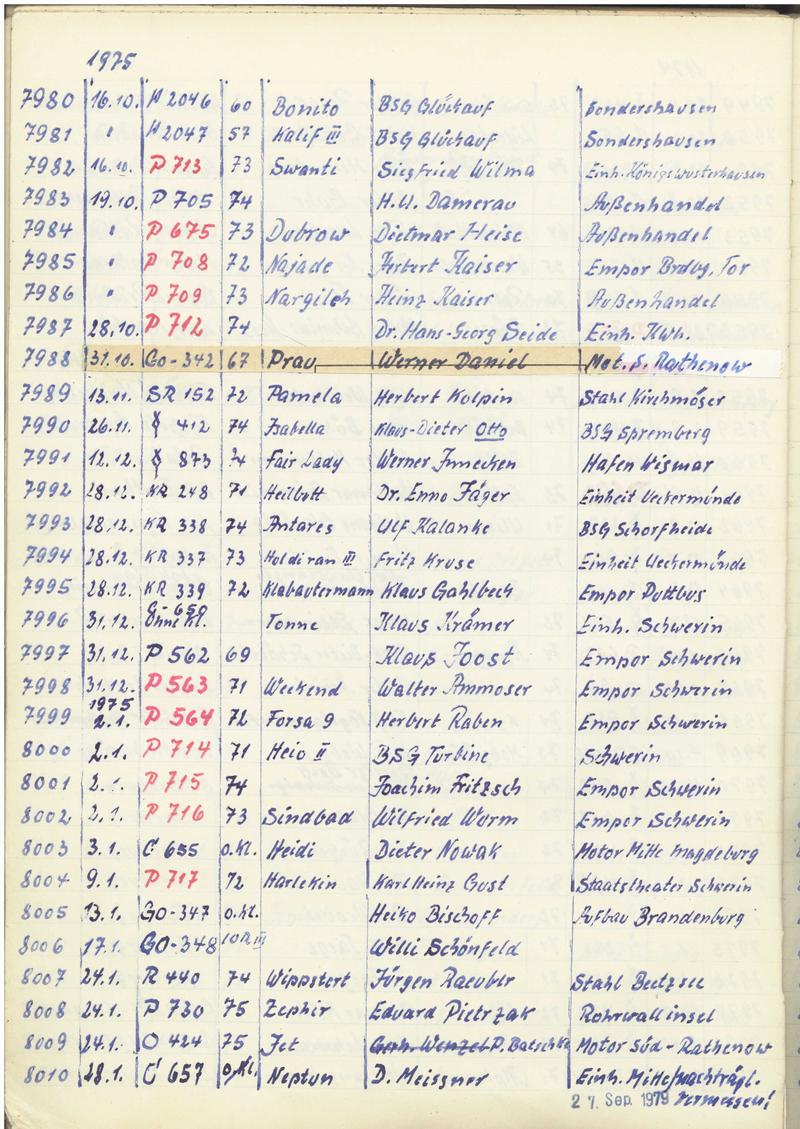 1975
7980 16.10. H 2046 60 Bonito BSG Glückauf Sondershausen
7981 " H 2047 57 Kalif III BSG Glückauf Sondershausen
7982 16.10. P 713 73 Swanti Siegfried Wilma Einh. Königswusterhausen
7983 19.10. P 705 74 H.U. Damerau Außenhandel
7984 " P 675 73 Dubrow Dietmar Heise Außenhandel
7985 " P 708 72 Najade Herbert Kaiser Empor Brdbg. Tor
7986 " P 709 73 Nargileh Heinz Kaiser Außenhandel
7987 28.10. P 712 74 Dr. Hans-Georg Seide Einh. Kwh.
7988 31.10. GO-342 67 Prau Werner Daniel Mot. S. Rathenow
7989 13.11. SR 152 72 Pamela Herbert Kolpin Stahl Kirchmöser
7990 26.11. 412 74 Isabella Klaus-Dieter Otto BSG Spremberg
7991 12.12. 873 74 Fair Lady Werner Hafen Wismar
7992 28.12. KR 248 71 Heilbutt Dr. Enno Jäger Einheit Ueckermünde
7993 28.12. KR 338 74 Antares Ulf Kalanke BSG Schorfheide
7994 28.12. KR 337 73 Fritz Kruse Einheit Ueckermünde
7995 28.12. KR 339 72 Klabautermann Klaus Gahlbeck Empor Puttbus
7996 31.12. G-650 Ohne Kl. Tonne Klaus Krämer Einh. Schwerin
7997 31.12. P 562 69 Klaus Joost Empor Schwerin
7998 31.12. P 563 71 Weekend Walter Ammoser Empor Schwerin
1975
7999 2.1. P 564 72 Forsa 9 Herbert Raben Empor Schwerin
8000 2.1. P 714 71 Heio II BSG Turbine Schwerin
8001 2.1. P 715 74 Joachim Fritzsch Empor Schwerin
8002 2.1. P 716 73 Sindbad Wilfried Wurm Empor Schwerin
8003 3.1. C 655 o.Kl. Heidi Dieter Nowak Motor Mitte Magdeburg
8004 9.1. P 717 72 Harlekin Karl Heinz Gust Staatstheater Schwerin
8005 13.1. GO-347 o.Kl. Heiko Bischoff Aufbau Brandenburg
8006 17.1. GO-348 10R III Willi Schönfeld
8007 24.1. R 440 74 Wippstert Jürgen Raeubtr Stahl Beetzsee
8008 24.1. P 730 75 Zephir Eduard Pietrzak Rohrwallinsel
8009 24.1. O 424 75 Jet Gerh. Wenzel P. Batschke Motor Süd-Rathenow
8010 28.1. C 657 o.Kl. Neptun D. Meissner Einh. Mitte/nachträgl.
27. Sep. 1979 vermessen!